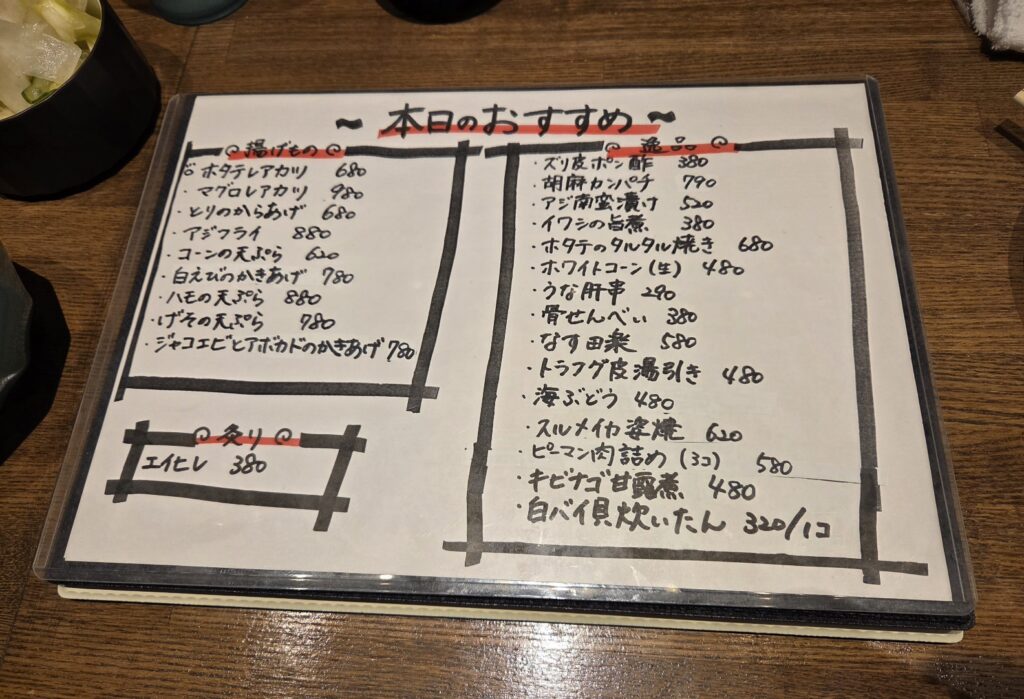 ～ 本日のおすすめ ～
揚げもの
ホタテレアカツ 680
・マグロレアカツ 980
・とりのからあげ 680
・アジフライ 880
・コーンの天ぷら 620
・白えびのかきあげ 780
・ハモの天ぷら 880
・げその天ぷら 780
・ジャコエビとアボカドのかきあげ 780
炙り
エイヒレ 380
逸品
・ズリ皮ポン酢 380
・胡麻カンパチ 790
・アジ南蛮漬け 520
・イワシの旨煮 380
・ホタテのタルタル焼き 680
・ホワイトコーン(生) 480
・うな肝串 290
・骨せんべい 380
・なす田楽 580
・トラフグ皮湯引き 480
・海ぶどう 480
・スルメイカ姿焼 620
・ピーマン肉詰め (3コ) 580
・キビナゴ甘露煮 480
・白バイ貝炊いたん 320/1コ